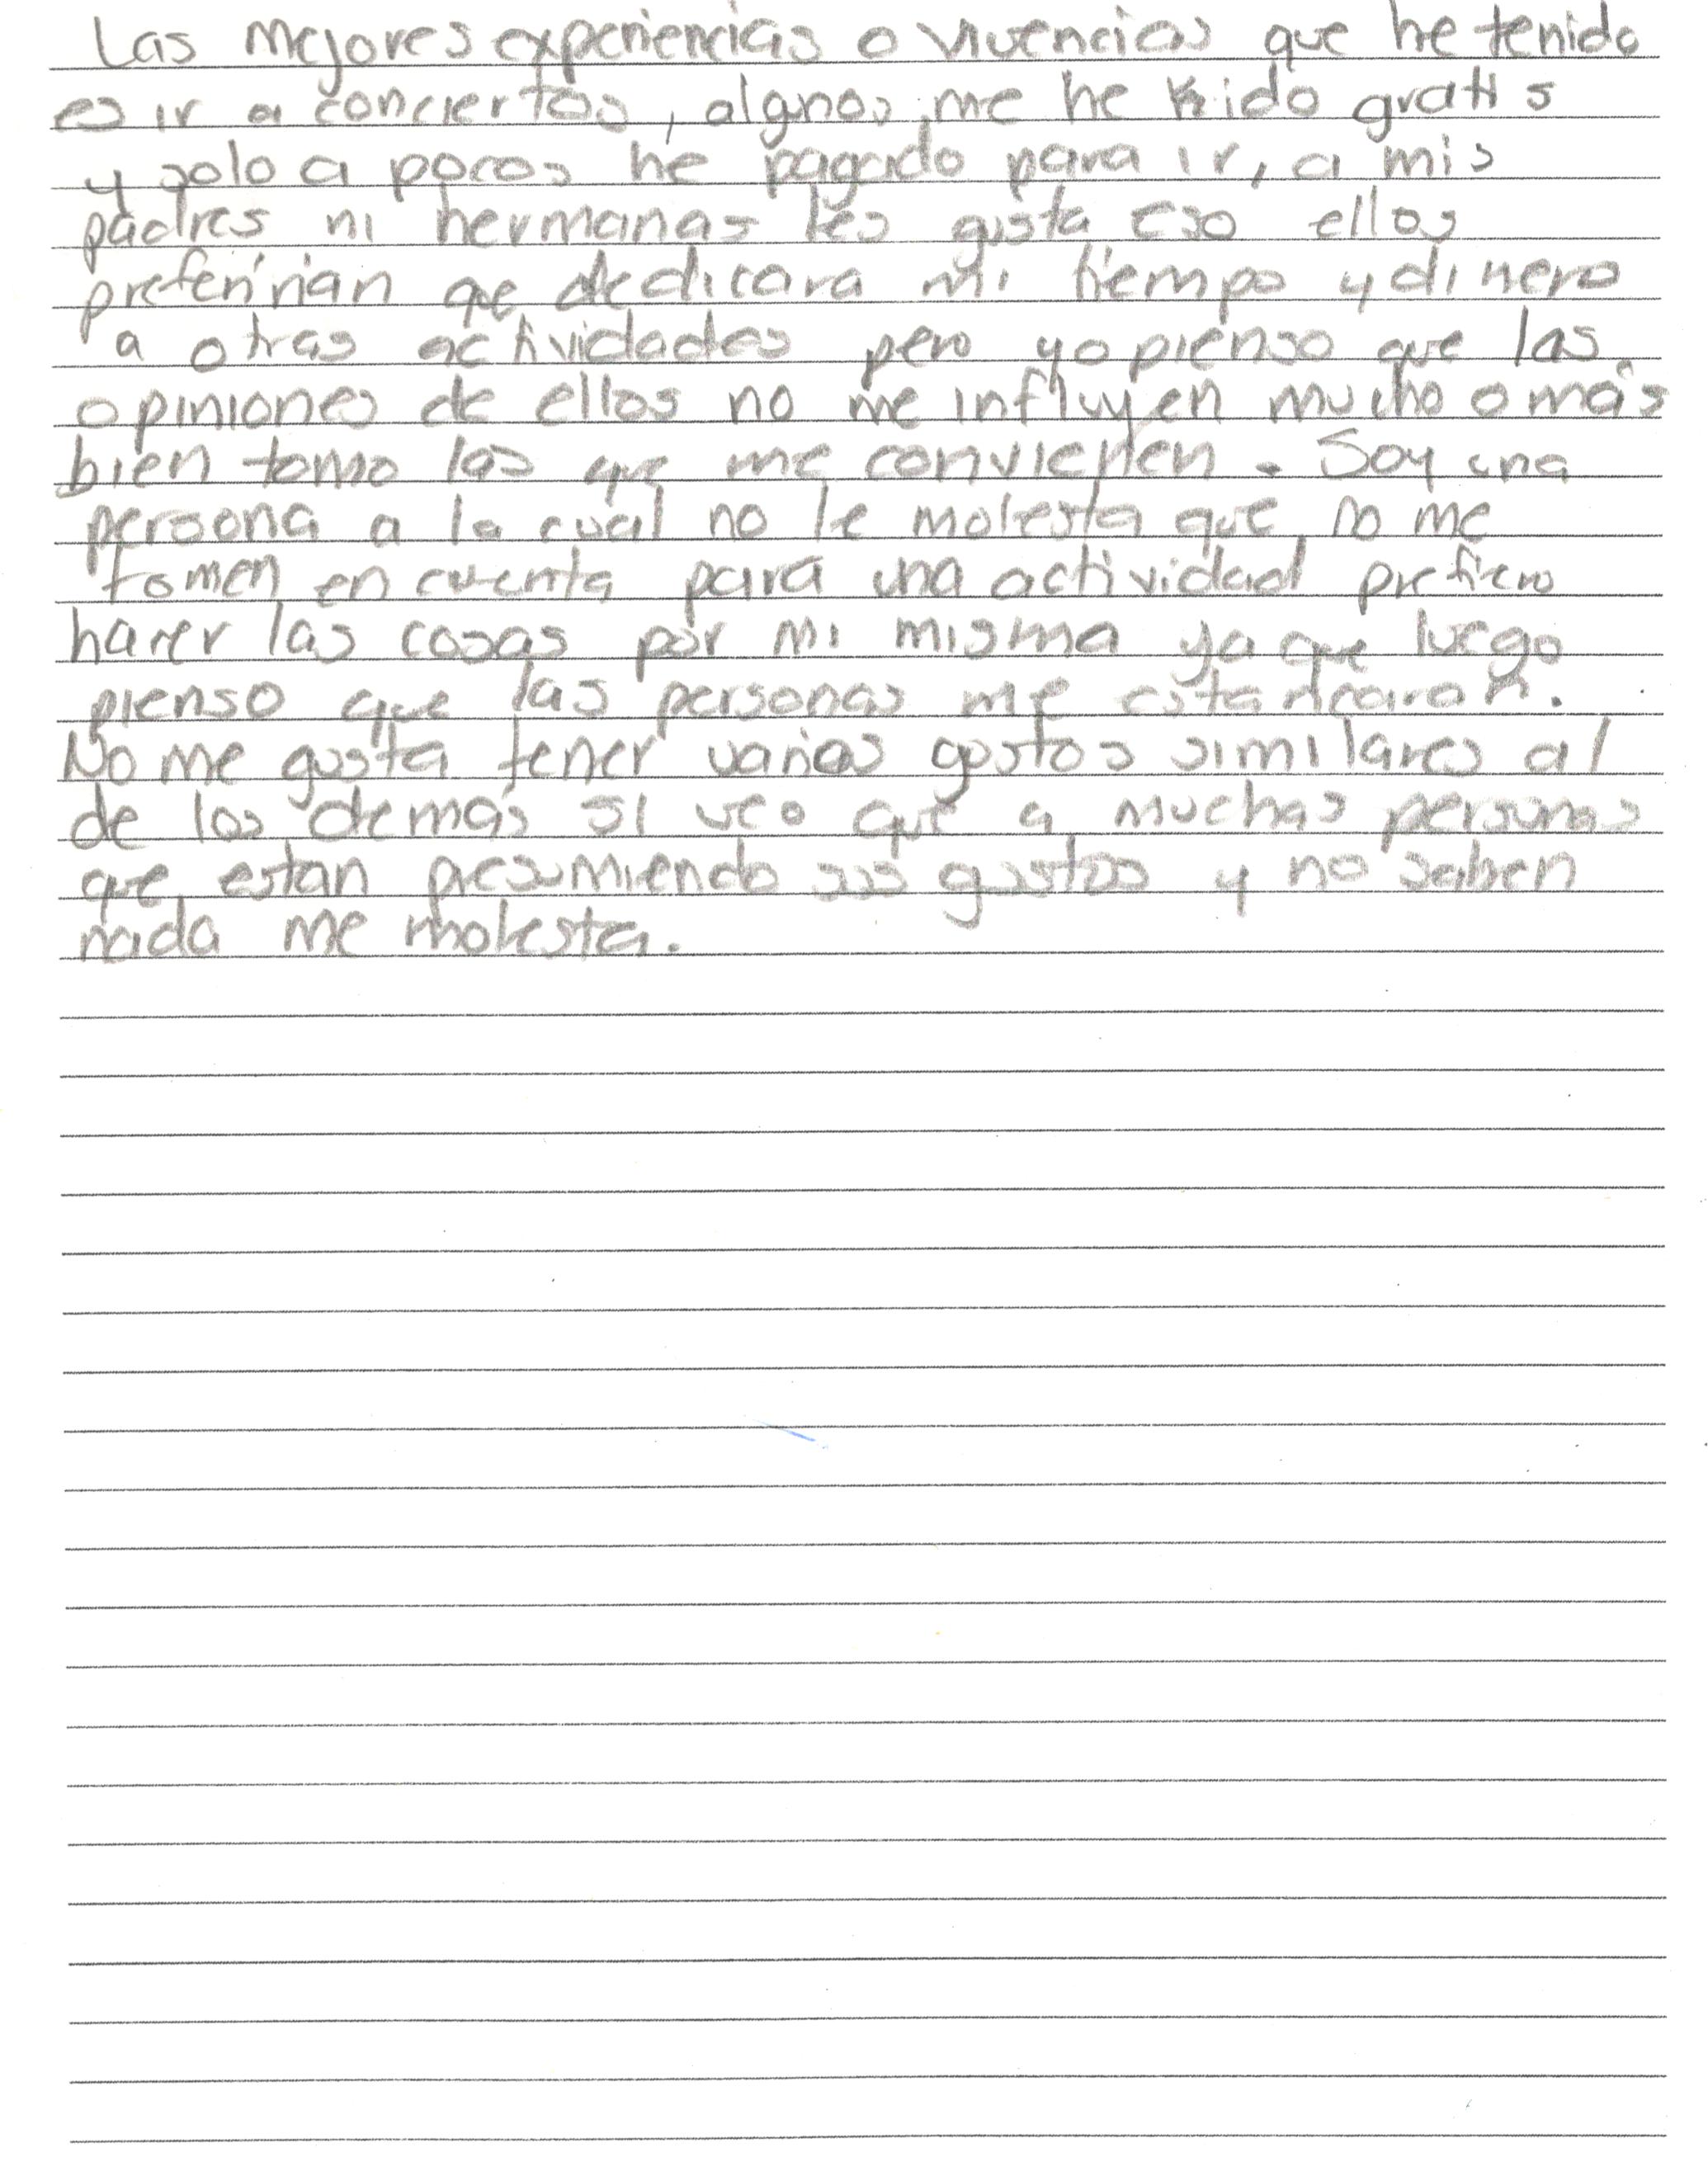 Las mejores experiencias o vivencias que he tenido
es ir a conciertos, algnos me he ido gratis
y solo a pocos he pagado para ir, a mis
padres ni hermanas les gusta eso ellos
preferirian que dedicara mi tiempo y dinero
a otras actividades pero yo pienso que las
opiniones de ellos no me influyen mucho o más
bien tomo las que me convienen. Soy una
persona a la cual no le molesta que no me
tomen en cuenta para una actividad prefiero
hacer las cosas por mi misma ya que luego
pienso que las personas me estancaran.
No me gusta tener varios gostos similares al
de los demás si veo que a muchas personas
que estan presumiendo sus gustos y no saben
nada me molesta.